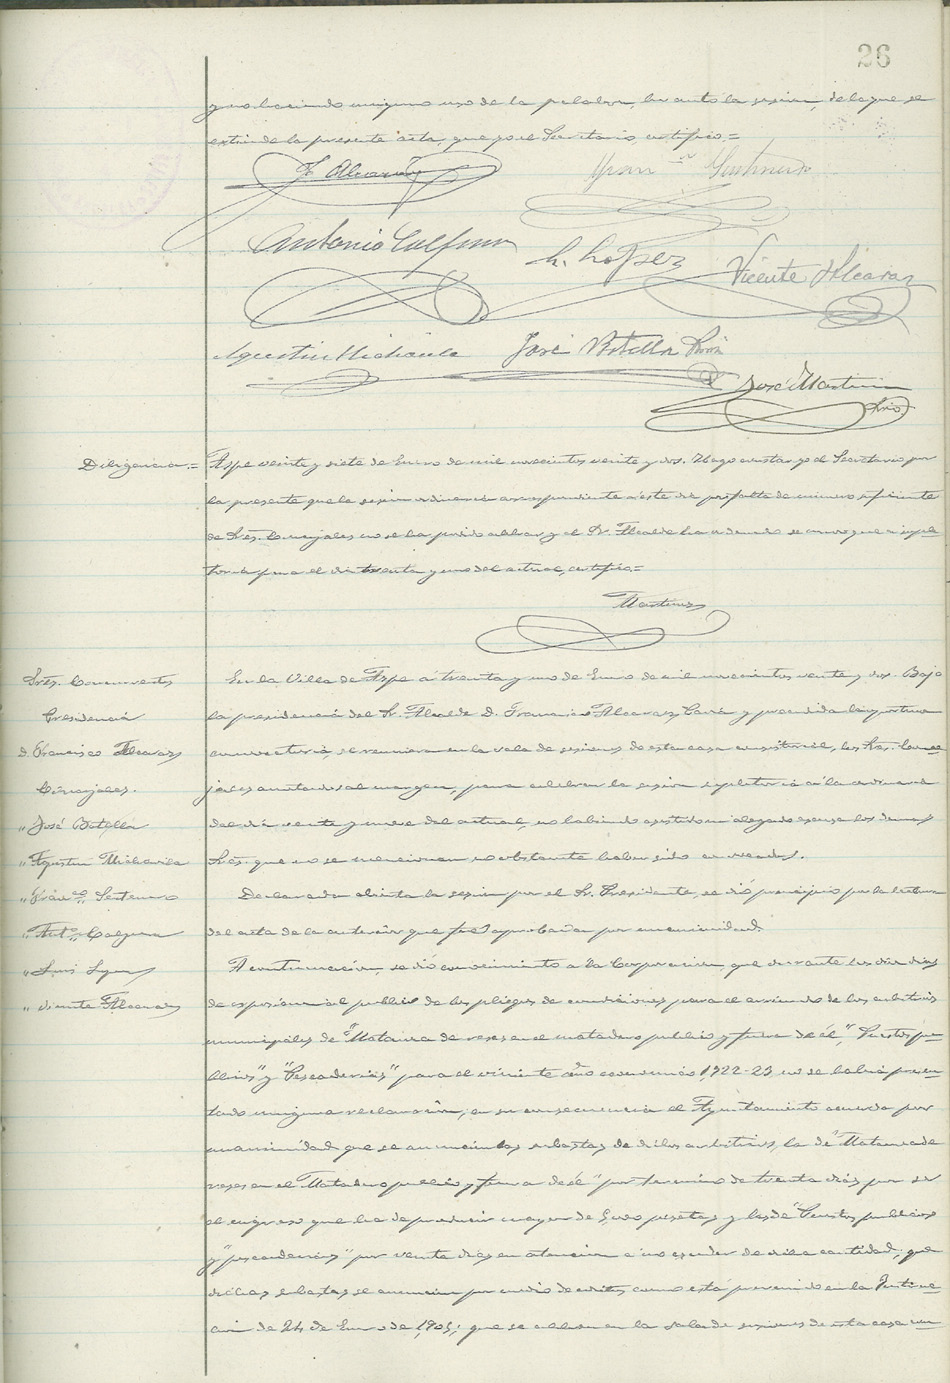 26
y no haciendo ninguno uso de la palabra, levantó la sesión, de la que se
extiende la presente acta, que yo el Secretario, certifico=
F. Alcaraz
Fran.co Santonero
Antonio Calpena
L. López
Vicente Alcaraz
Agustin Michavila
José Botella
José Martinez
Srio.
Diligencia.= Aspe veinte y siete de Enero de mil novecientos veinte y dos. Hago constar yo el Secretario por
la presente que la sesión ordinaria correspondiente a este día por falta de número suficiente
de Sres. Concejales no se ha podido celebrar y el Sr. Alcalde ha ordenado se convoque a suple-
toria para el dia treinta y uno del actual, certifico=
Martinez
Sres. Concurrentes
Presidencia
D. Francisco Alcaraz
Concejales.
" José Botella
" Agustin Michavila
" Fran.co
" Ant.o Calpena
" Luis
" Vicente Alcaraz
En la Villa de Aspe á treinta y uno de Enero de mil novecientos veinte y dos. Bajo
la presidencia del Sr. Alcalde D. Francisco Alcaraz y precedida la oportuna
convocatoria, se reunieron en la sala de sesiones de esta casa consistorial, los Sres. Conce-
jales anotados al margen, para celebrar la sesión supletoria á la ordinaria
del día veinte y siete del actual, no habiendo asistido ni alegado excusa los demas
Sres. que no se mencionan no obstante haber sido convocados.
Declarada abierta la sesión por el Sr. Presidente, se dió principio por la lectura
del acta de la anterior que fué aprobada por unanimidad.
A continuación, se dió conocimiento a la Corporación, que durante los diez dias
de exposición al publico de los pliegos de condiciones para el arriendo de los arbitrios
municipales de "Matanza de reses en el matadero publico y fuera de él," "Puestos pu-
blicos" y "Pescaderias" para el viniente año economico 1,922-23 no se habia presen-
tado ninguna reclamación, en su consecuencia el Ayuntamiento acuerda por
unanimidad que se anuncien las subastas de dichos arbitrios, la de "Matanza de
reses en el Matadero publico y fuera de él" por termino de treinta dias por ser
el ingreso que ha de producir mayor de 5,000 pesetas y las de "Puestos publicos"
y "pescaderias" por veinte dias en atencion a no exceder de dicha cantidad; que
dichas subastas se anuncien por medio de edictos como está prevenido en la Instruc-
ción de 24 de Enero de 1,905; que se celebren en la sala de sesiones de esta casa con-